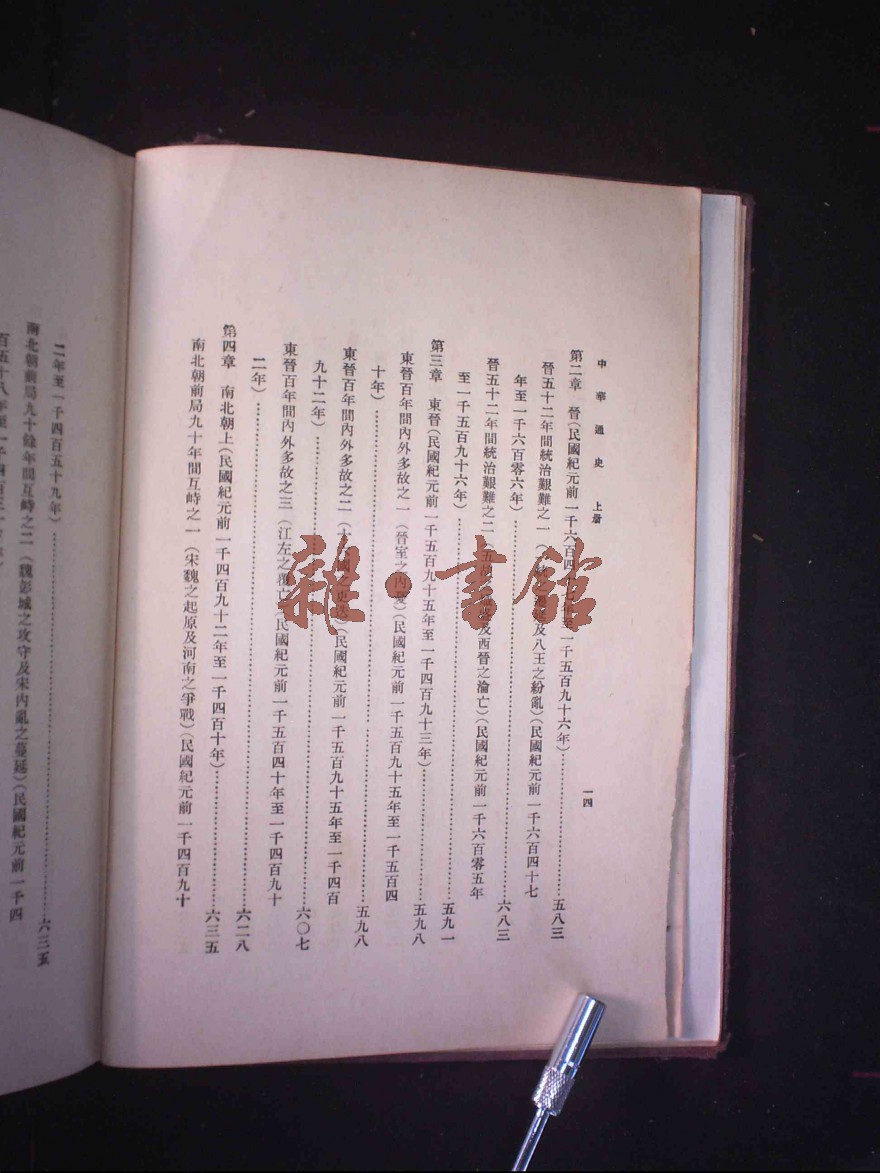 中華通史 上册
一四
第二章 晉(民國紀元前一千六百四十年至一千五百九十六年)……五八三
晉五十二年間統治艱難之一 延及八王之紛亂)(民國紀元前一千六百四十七
年至一千六百零六年)……六八三
晉五十二年間統治艱難之二 及西晉之淪亡)(民國紀元前一千六百零五年
至一千五百九十六年)……五九一
第三章 東晉(民國紀元前一千五百九十五年至一千四百九十三年)……五九八
東晉百年間內外多故之一(晉室之內憂)(民國紀元前一千五百九十五年至一千五百四
十年)……五九八
東晉百年間內外多故之二(十 國之更迭)(民國紀元前一千五百九十五年至一千四百
九十二年)……六〇七
東晉百年間內外多故之三(江左之覆亡)(民國紀元前一千五百四十年至一千四百九十
二年)……六二八
第四章 南北朝上(民國紀元前一千四百九十二年至一千四百十年)……六三五
南北朝前局九十年間互峙之一(宋魏之起原及河南之爭戰)(民國紀元前一千四百九十
二年至一千四百五十九年)……六三五
南北朝前局九十餘年間互峙之二(魏彭城之攻守及宋內亂之蔓延)(民國紀元前一千四
百五十八年至一千四百
雜·書館